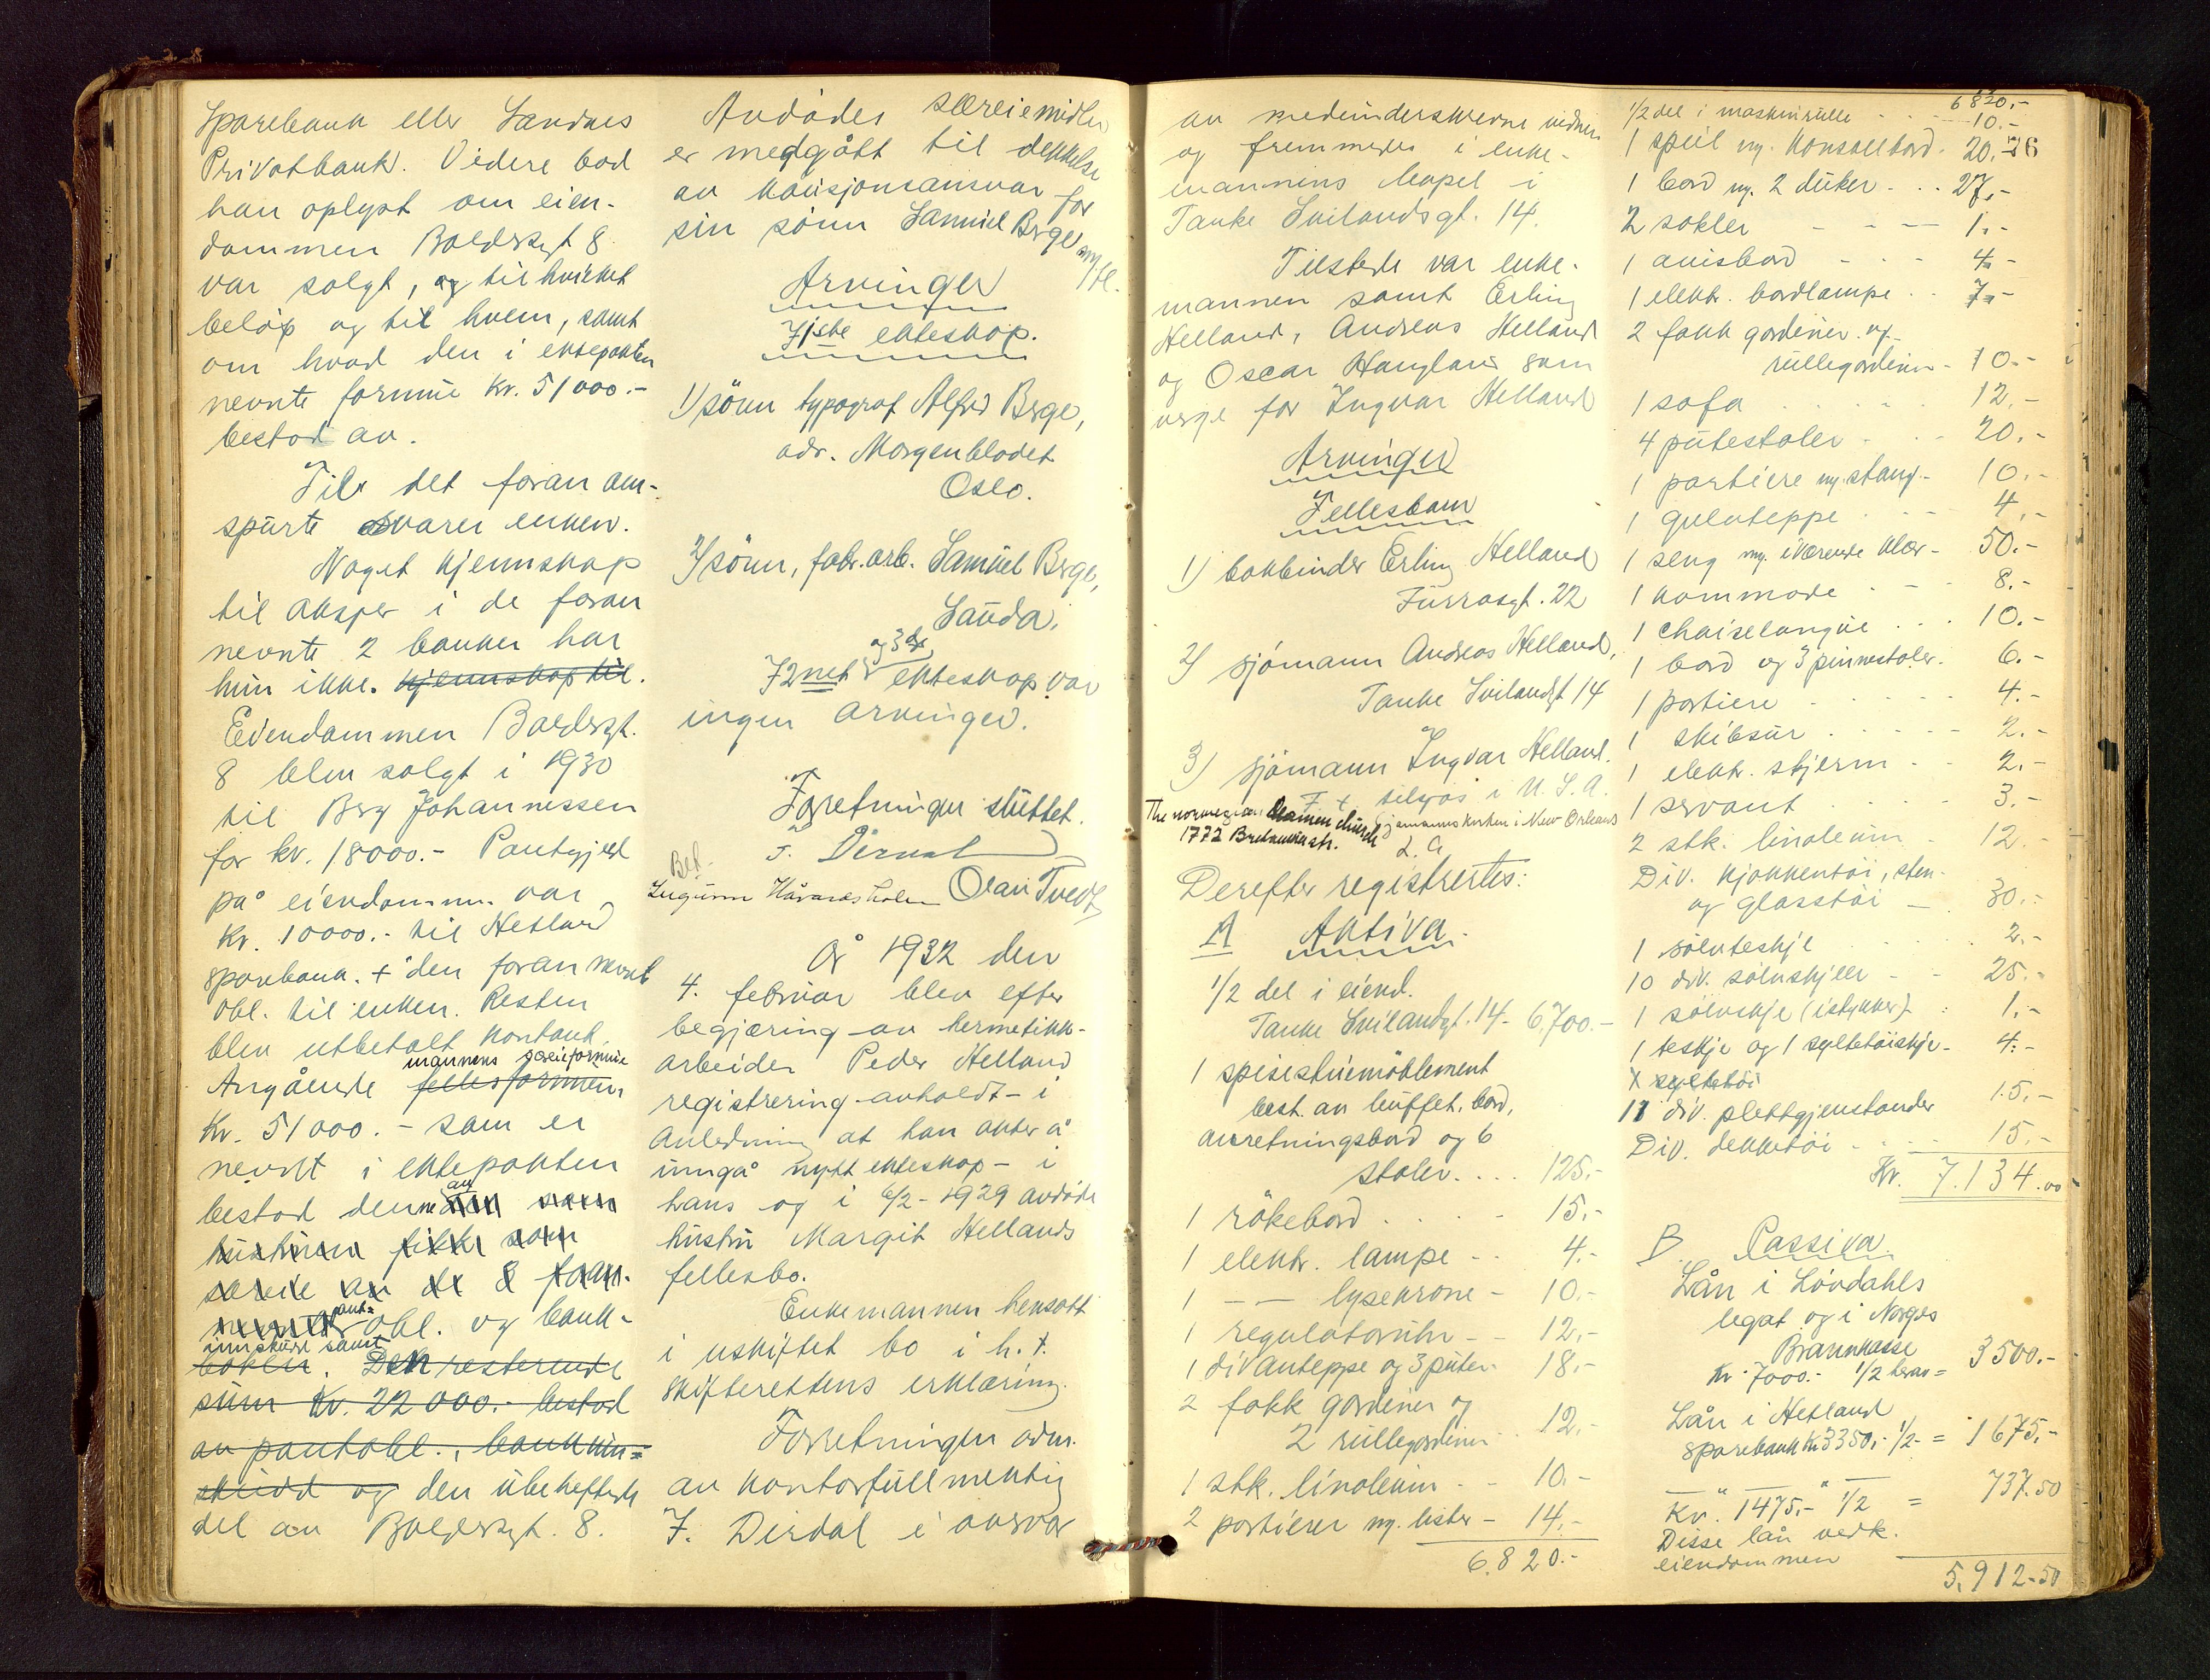 Sparebank eller Sandnes
Privatbank. Videre bad
han oplyst om eien-
dommen Boldesgt 8
var solgt, og til hvilket
beløp og til hvem, samt
om hvad den i ektepakten
nevnte formue Kr. 51000.-
bestod av.
Til det foran om-
spurte svarer enken.
Noget kjennskap
til aksjer i de foran
nevnte 2 banker har
hun ikke. kjennskap til.
Eiendommen Boldesgt.
8 blev solgt i 1930
til Berg Johannessen
for kr. 18000.- Pantgjeld
på eiendommen var
Kr. 10000.- til Hetland
sparebank. + den foran nevnte
obl. til enken. Resten
blev utbetalt kontant.
mannens særeieformue
Angående fellesformuen
Kr. 51000.- som er
nevnt i ektepakten
bestod denne av som
hustruen fikk som
særeie av de 2 foran-
pant-
obl. og bank-
innskudd samt
boken. Den resterende
sum Kr. 22000.- bestod
av pantobl., bankinn-
skudd og den ubeheftede
del av Boldesgt. 8.
Avdødes særeiemidler
er medgått til dekkelse
av kausjonsansvar for
sin sønn Samuel Berge m/fl.
Arvinger
I 1ste ekteskap.
1) sønn typograf Alfred Berge,
adr. Morgenbladet
Oslo.
2) sønn, fabr.arb. Samuel Berge,
Sauda.
og 3dje
I 2net ekteskap var
ingen arvinger.
Forretningen sluttet.
F. Dirdal
Bet.
Ingunn Håvarsholm Olav Tvedt
År 1932 den
4. februar blev efter
begjæring av hermetikk-
arbeider Peder Helland
registrering avholdt i
anledning at han akter å
inngå nytt ekteskap - i
hans og i 6/2-1929 avdøde
hustru Margit Hellands
fellesbo.
Enkemannen hensatt
i uskiftet bo i h.t.
skifterettens erklæring.
Forretningen adm.
av kontorfullmektig
F. Dirdal i ansvar
av medunderskrevne vidner
og fremmedes i enke-
mannens bopel i
Tanke Svilandsgt. 14.
Tilstede var enke-
mannen samt Erling
Helland, Andreas Helland
og Oscar Haugland som
verge for Ingvar Helland
Arvinger
Fellesbarn
1) bokbinder Erling Helland
Furrasgt. 22
2) sjømann Andreas Helland,
Tanke Svilandsgt 14
3) sjømann Ingvar Helland.
tilsjøs i U.S.A.
The norwegian Seamen church sjømannskirken i New Orleans
1772 Britannia str. L. A
Derefter registrertes:
A Aktiva.
1/2 del i eiend.
Tanke Svilandsgt. 14 - 6,700.-
1 spisestuemøblement
best. av buffet, bord,
anretningsbord og 6
stoler. . . . 125.-
1 røkebord . . . - 15.-
1 elektr. lampe - - 4.-
1 - - lysekrone - 10.-
1 regulatoruhr - - 12.-
1 divanteppe og 3 puter - 18.-
2 fakk gardiner og
2 rullegardiner . 12.-
1 stk. linoleum - - 10.-
2 portierer m. lister - 14.-
6.820.-
6820.-
1/2 del i maskinrulle - - - 10.-
1 speil m. konsollbord - 20.- 76
1 bord m. 2 duker - . . 27.-
2 sokler - - - 1.-
1 avisbord - - - 4.-
1 elektr. bordlampe . . 7.-
2 fakk gardiner og
rullegardiner - 10.-
1 sofa . . . . 12.-
4 putestoler - . - 20.-
1 portiere m. stang - 10.-
1 gulvteppe . - - 4.-
1 seng m. iværende klær - 50.-
1 kommode . - - 8.-
1 chaiselongue . . . 10.-
1 bord og 3 pinnestoler. 6.-
1 portiere - - - - 4.-
1 skibsur . . . . 2.-
1 elektr. skjerm - - 2.-
1 servant . . . . 3.-
2 stk. linoleum - - 12.-
Div. kjøkkentøi, sten-
og glasstøi - . 30.-
1 sølvteskje . . . 2.-
10 div. sølvskjeer - - 25.-
1 sølvskje (i stykker) - 1.-
1 teskje og 1 syltetøiskje - 4.-
1 syltetøi
11 div. plettgjenstander 15.-
Div. dekketøi - . . . 15.-
Kr. 7.134.00
B. Passiva.
Lån i Løvdahls
legat og i Norges
Brannkasse
Kr 7000.- 1/2 herav = 3500.-
Lån i Hetland
sparebank Kr. 3350.- 1/2 - = 1675.-
Kr. 1475.- 1/2 = 737.50
Disse lån vedk.
eiendommen
5,912-50